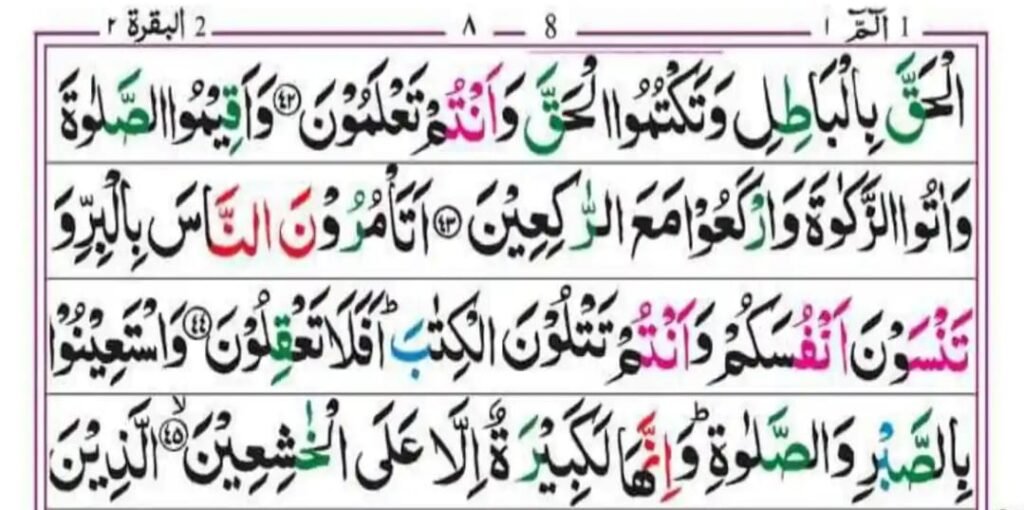 1 الٓمّٓ ١ 8 ٨ 2 البقرة ٢
الْحَقَّ بِالْبَاطِلِ وَتَكْتُمُوا الْحَقَّ وَاَنْتُمْ تَعْلَمُوْنَ ﴿٤٢﴾ وَاَقِيْمُوا الصَّلٰوةَ
وَاٰتُوا الزَّكٰوةَ وَارْكَعُوْا مَعَ الرّٰكِعِيْنَ ﴿٤٣﴾ اَتَاْمُرُوْنَ النَّاسَ بِالْبِرِّ وَ
تَنْسَوْنَ اَنْفُسَكُمْ وَاَنْتُمْ تَتْلُوْنَ الْكِتٰبَ ؕ اَفَلَا تَعْقِلُوْنَ ﴿٤٤﴾ وَاسْتَعِيْنُوْا
بِالصَّبْرِ وَالصَّلٰوةِ ؕ وَاِنَّهَا لَكَبِيْرَةٌ اِلَّا عَلَى الْخٰشِعِيْنَ ﴿٤٥﴾ۙ الَّذِيْنَ